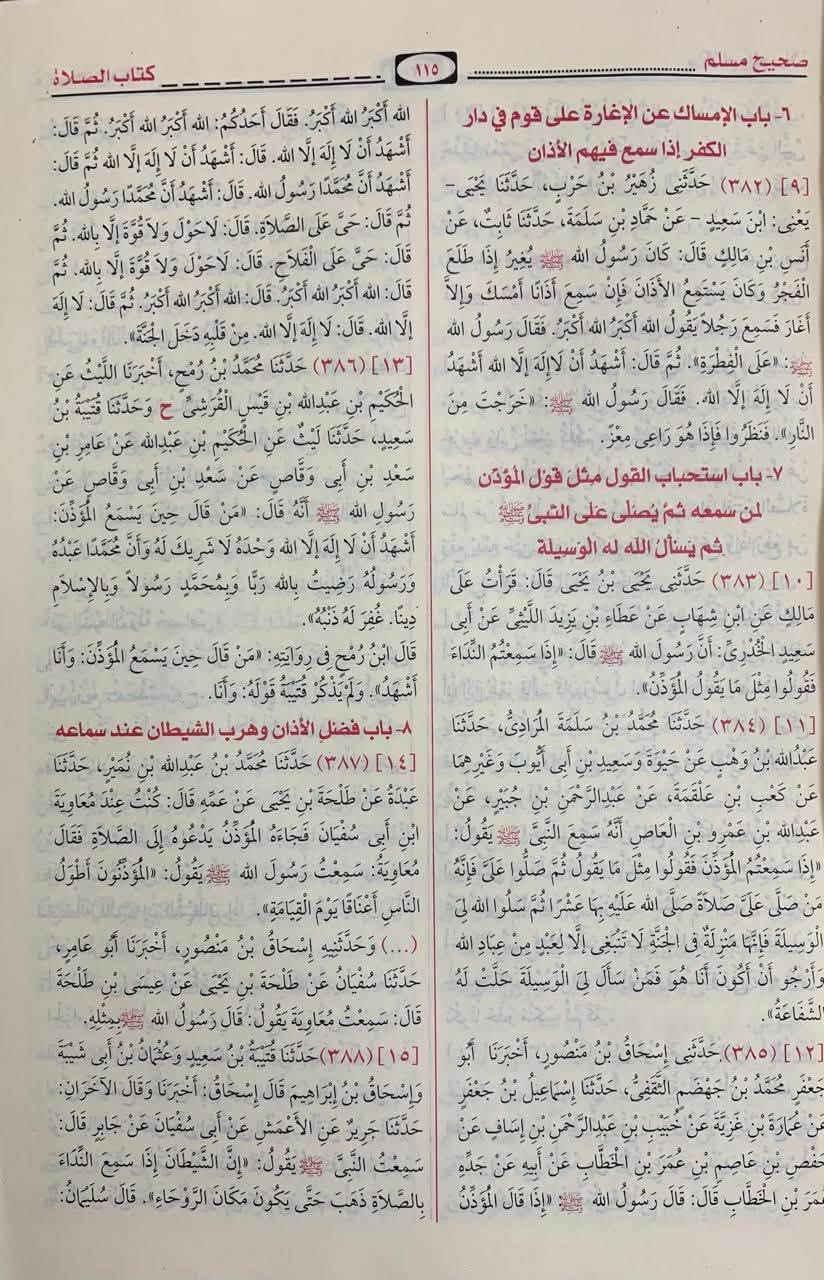 صحيح مسلم
١١٥
كتاب الصلاة
٦- باب الإمساك عن الإغارة على قوم في دار
الكفر إذا سمع فيهم الأذان
[٩] (٣٨٢) حَدَّثَنِي زُهَيْرُ بْنُ حَرْبٍ، حَدَّثَنَا يَحْيَى -
يَعْنِي: ابْنَ سَعِيدٍ - عَنْ حَمَّادِ بْنِ سَلَمَةَ، حَدَّثَنَا ثَابِتٌ، عَنْ
أَنَسِ بْنِ مَالِكٍ قَالَ: كَانَ رَسُولُ الله ﷺ يُغِيرُ إِذَا طَلَعَ
الْفَجْرُ وَكَانَ يَسْتَمِعُ الْأَذَانَ فَإِنْ سَمِعَ أَذَانًا أَمْسَكَ وَإِلَّا
أَغَارَ فَسَمِعَ رَجُلاً يَقُولُ الله أَكْبَرُ الله أَكْبَرُ. فَقَالَ رَسُولُ الله
ﷺ: «عَلَى الْفِطْرَةِ». ثُمَّ قَالَ: أَشْهَدُ أَنْ لَا إِلَهَ إِلَّا الله أَشْهَدُ
أَنْ لَا إِلَهَ إِلَّا الله. فَقَالَ رَسُولُ الله ﷺ: «خَرَجْتَ مِنَ
النَّارِ». فَنَظَرُوا فَإِذَا هُوَ رَاعِي مِعْزًى.
٧- باب استحباب القول مثل قول المؤذن
لمن سمعه ثم يُصلى على النبي ﷺ
ثم يسأل الله له الوسيلة
[١٠] (٣٨٣) حَدَّثَنِي يَحْيَى بْنُ يَحْيَى قَالَ: قَرَأْتُ عَلَى
مَالِكٍ عَنِ ابْنِ شِهَابٍ عَنْ عَطَاءِ بْنِ يَزِيدَ اللَّيْثِيِّ عَنْ أَبِي
سَعِيدٍ الْخُدْرِيِّ: أَنَّ رَسُولَ الله ﷺ قَالَ: «إِذَا سَمِعْتُمُ النِّدَاءَ
فَقُولُوا مِثْلَ مَا يَقُولُ الْمُؤَذِّنُ».
[١١] (٣٨٤) حَدَّثَنَا مُحَمَّدُ بْنُ سَلَمَةَ الْمُرَادِيُّ، حَدَّثَنَا
عَبْدُالله بْنُ وَهْبٍ عَنْ حَيْوَةَ وَسَعِيدِ بْنِ أَبِي أَيُّوبَ وَغَيْرِهِمَا
عَنْ كَعْبِ بْنِ عَلْقَمَةَ، عَنْ عَبْدِالرَّحْمَنِ بْنِ جُبَيْرٍ، عَنْ
عَبْدِالله بْنِ عَمْرِو بْنِ الْعَاصِ أَنَّهُ سَمِعَ النَّبِيَّ ﷺ يَقُولُ:
«إِذَا سَمِعْتُمُ الْمُؤَذِّنَ فَقُولُوا مِثْلَ مَا يَقُولُ ثُمَّ صَلُّوا عَلَيَّ فَإِنَّهُ
مَنْ صَلَّى عَلَيَّ صَلَاةً صَلَّى الله عَلَيْهِ بِهَا عَشْرًا ثُمَّ سَلُوا الله لِيَ
الْوَسِيلَةَ فَإِنَّهَا مَنْزِلَةٌ فِي الْجَنَّةِ لَا تَنْبَغِي إِلَّا لِعَبْدٍ مِنْ عِبَادِ الله
وَأَرْجُو أَنْ أَكُونَ أَنَا هُوَ فَمَنْ سَأَلَ لِيَ الْوَسِيلَةَ حَلَّتْ لَهُ
الشَّفَاعَةُ».
[١٢] (٣٨٥) حَدَّثَنِي إِسْحَاقُ بْنُ مَنْصُورٍ، أَخْبَرَنَا أَبُو
جَعْفَرٍ مُحَمَّدُ بْنُ جَهْضَمٍ الثَّقَفِيُّ، حَدَّثَنَا إِسْمَاعِيلُ بْنُ جَعْفَرٍ
عَنْ عُمَارَةَ بْنِ غَزِيَّةَ عَنْ خُبَيْبِ بْنِ عَبْدِالرَّحْمَنِ بْنِ إِسَافٍ عَنْ
حَفْصِ بْنِ عَاصِمِ بْنِ عُمَرَ بْنِ الْخَطَّابِ عَنْ أَبِيهِ عَنْ جَدِّهِ
عُمَرَ بْنِ الْخَطَّابِ قَالَ: قَالَ رَسُولُ الله ﷺ: «إِذَا قَالَ الْمُؤَذِّنُ
الله أَكْبَرُ الله أَكْبَرُ. فَقَالَ أَحَدُكُمُ: الله أَكْبَرُ الله أَكْبَرُ. ثُمَّ قَالَ:
أَشْهَدُ أَنْ لَا إِلَهَ إِلَّا الله. قَالَ: أَشْهَدُ أَنْ لَا إِلَهَ إِلَّا الله ثُمَّ قَالَ:
أَشْهَدُ أَنَّ مُحَمَّدًا رَسُولُ الله. قَالَ: أَشْهَدُ أَنَّ مُحَمَّدًا رَسُولُ الله.
ثُمَّ قَالَ: حَيَّ عَلَى الصَّلَاةِ. قَالَ: لَا حَوْلَ وَلَا قُوَّةَ إِلَّا بِالله. ثُمَّ
قَالَ: حَيَّ عَلَى الْفَلَاحِ. قَالَ: لَا حَوْلَ وَلَا قُوَّةَ إِلَّا بِالله. ثُمَّ
قَالَ: الله أَكْبَرُ الله أَكْبَرُ. قَالَ: الله أَكْبَرُ الله أَكْبَرُ. ثُمَّ قَالَ: لَا إِلَهَ
إِلَّا الله. قَالَ: لَا إِلَهَ إِلَّا الله. مِنْ قَلْبِهِ دَخَلَ الْجَنَّةَ».
[١٣] (٣٨٦) حَدَّثَنَا مُحَمَّدُ بْنُ رُمْحٍ، أَخْبَرَنَا اللَّيْثُ عَنِ
الْحُكَيْمِ بْنِ عَبْدِالله بْنِ قَيْسٍ الْقُرَشِيِّ ح وَحَدَّثَنَا قُتَيْبَةُ بْنُ
سَعِيدٍ، حَدَّثَنَا لَيْثٌ عَنِ الْحُكَيْمِ بْنِ عَبْدِالله عَنْ عَامِرِ بْنِ
سَعْدِ بْنِ أَبِي وَقَّاصٍ عَنْ سَعْدِ بْنِ أَبِي وَقَّاصٍ عَنْ
رَسُولِ الله ﷺ أَنَّهُ قَالَ: «مَنْ قَالَ حِينَ يَسْمَعُ الْمُؤَذِّنَ:
أَشْهَدُ أَنْ لَا إِلَهَ إِلَّا الله وَحْدَهُ لَا شَرِيكَ لَهُ وَأَنَّ مُحَمَّدًا عَبْدُهُ
وَرَسُولُهُ رَضِيتُ بِالله رَبًّا وَبِمُحَمَّدٍ رَسُولاً وَبِالإِسْلَامِ
دِينًا. غُفِرَ لَهُ ذَنْبُهُ».
قَالَ ابْنُ رُمْحٍ فِي رِوَايَتِهِ: «مَنْ قَالَ حِينَ يَسْمَعُ الْمُؤَذِّنَ: وَأَنَا
أَشْهَدُ». وَلَمْ يَذْكُرْ قُتَيْبَةُ قَوْلَهُ: وَأَنَا.
٨- باب فضل الأذان وهرب الشيطان عند سماعه
[١٤] (٣٨٧) حَدَّثَنَا مُحَمَّدُ بْنُ عَبْدِالله بْنِ نُمَيْرٍ، حَدَّثَنَا
عَبْدَةُ عَنْ طَلْحَةَ بْنِ يَحْيَى عَنْ عَمِّهِ قَالَ: كُنْتُ عِنْدَ مُعَاوِيَةَ
ابْنِ أَبِي سُفْيَانَ فَجَاءَهُ الْمُؤَذِّنُ يَدْعُوهُ إِلَى الصَّلَاةِ فَقَالَ
مُعَاوِيَةُ: سَمِعْتُ رَسُولَ الله ﷺ يَقُولُ: «الْمُؤَذِّنُونَ أَطْوَلُ
النَّاسِ أَعْنَاقًا يَوْمَ الْقِيَامَةِ».
(...) وَحَدَّثَنِيهِ إِسْحَاقُ بْنُ مَنْصُورٍ، أَخْبَرَنَا أَبُو عَامِرٍ،
حَدَّثَنَا سُفْيَانُ عَنْ طَلْحَةَ بْنِ يَحْيَى عَنْ عِيسَى بْنِ طَلْحَةَ
قَالَ: سَمِعْتُ مُعَاوِيَةَ يَقُولُ: قَالَ رَسُولُ الله ﷺ بِمِثْلِهِ.
[١٥] (٣٨٨) حَدَّثَنَا قُتَيْبَةُ بْنُ سَعِيدٍ وَعُثْمَانُ بْنُ أَبِي شَيْبَةَ
وَإِسْحَاقُ بْنُ إِبْرَاهِيمَ قَالَ إِسْحَاقُ: أَخْبَرَنَا وَقَالَ الْآخَرَانِ:
حَدَّثَنَا جَرِيرٌ عَنِ الْأَعْمَشِ عَنْ أَبِي سُفْيَانَ عَنْ جَابِرٍ قَالَ:
سَمِعْتُ النَّبِيَّ ﷺ يَقُولُ: «إِنَّ الشَّيْطَانَ إِذَا سَمِعَ النِّدَاءَ
بِالصَّلَاةِ ذَهَبَ حَتَّى يَكُونَ مَكَانَ الرَّوْحَاءِ». قَالَ سُلَيْمَانُ: